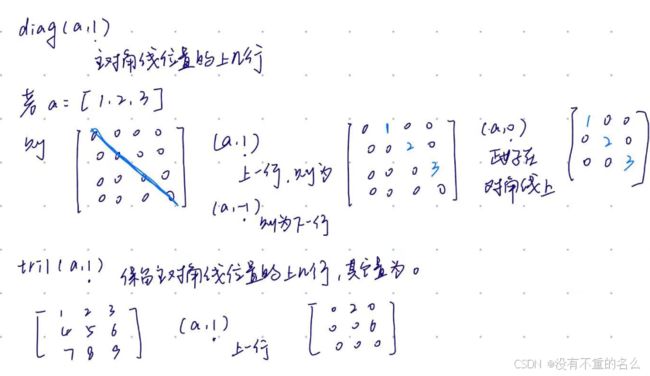 diag(a,1)
主对角线位置的上n行
若 a = [1, 2, 3]
则
0 0 0 0
0 0 0 0
0 0 0 0
0 0 0 0
(a,1)
上一行,则为
(a,-1)
则为下一行
0 1 0 0
0 0 2 0
0 0 0 3
0 0 0 0
(a,0)
正好在
对角线上
1 0 0
0 2 0
0 0 3
tril(a,1) 保留主对角线位置的上n行,其它置为0
1 2 3
4 5 6
7 8 9
(a,1)
上一行
0 2 0
0 0 6
0 0 0
CSDN @没有不重的名么